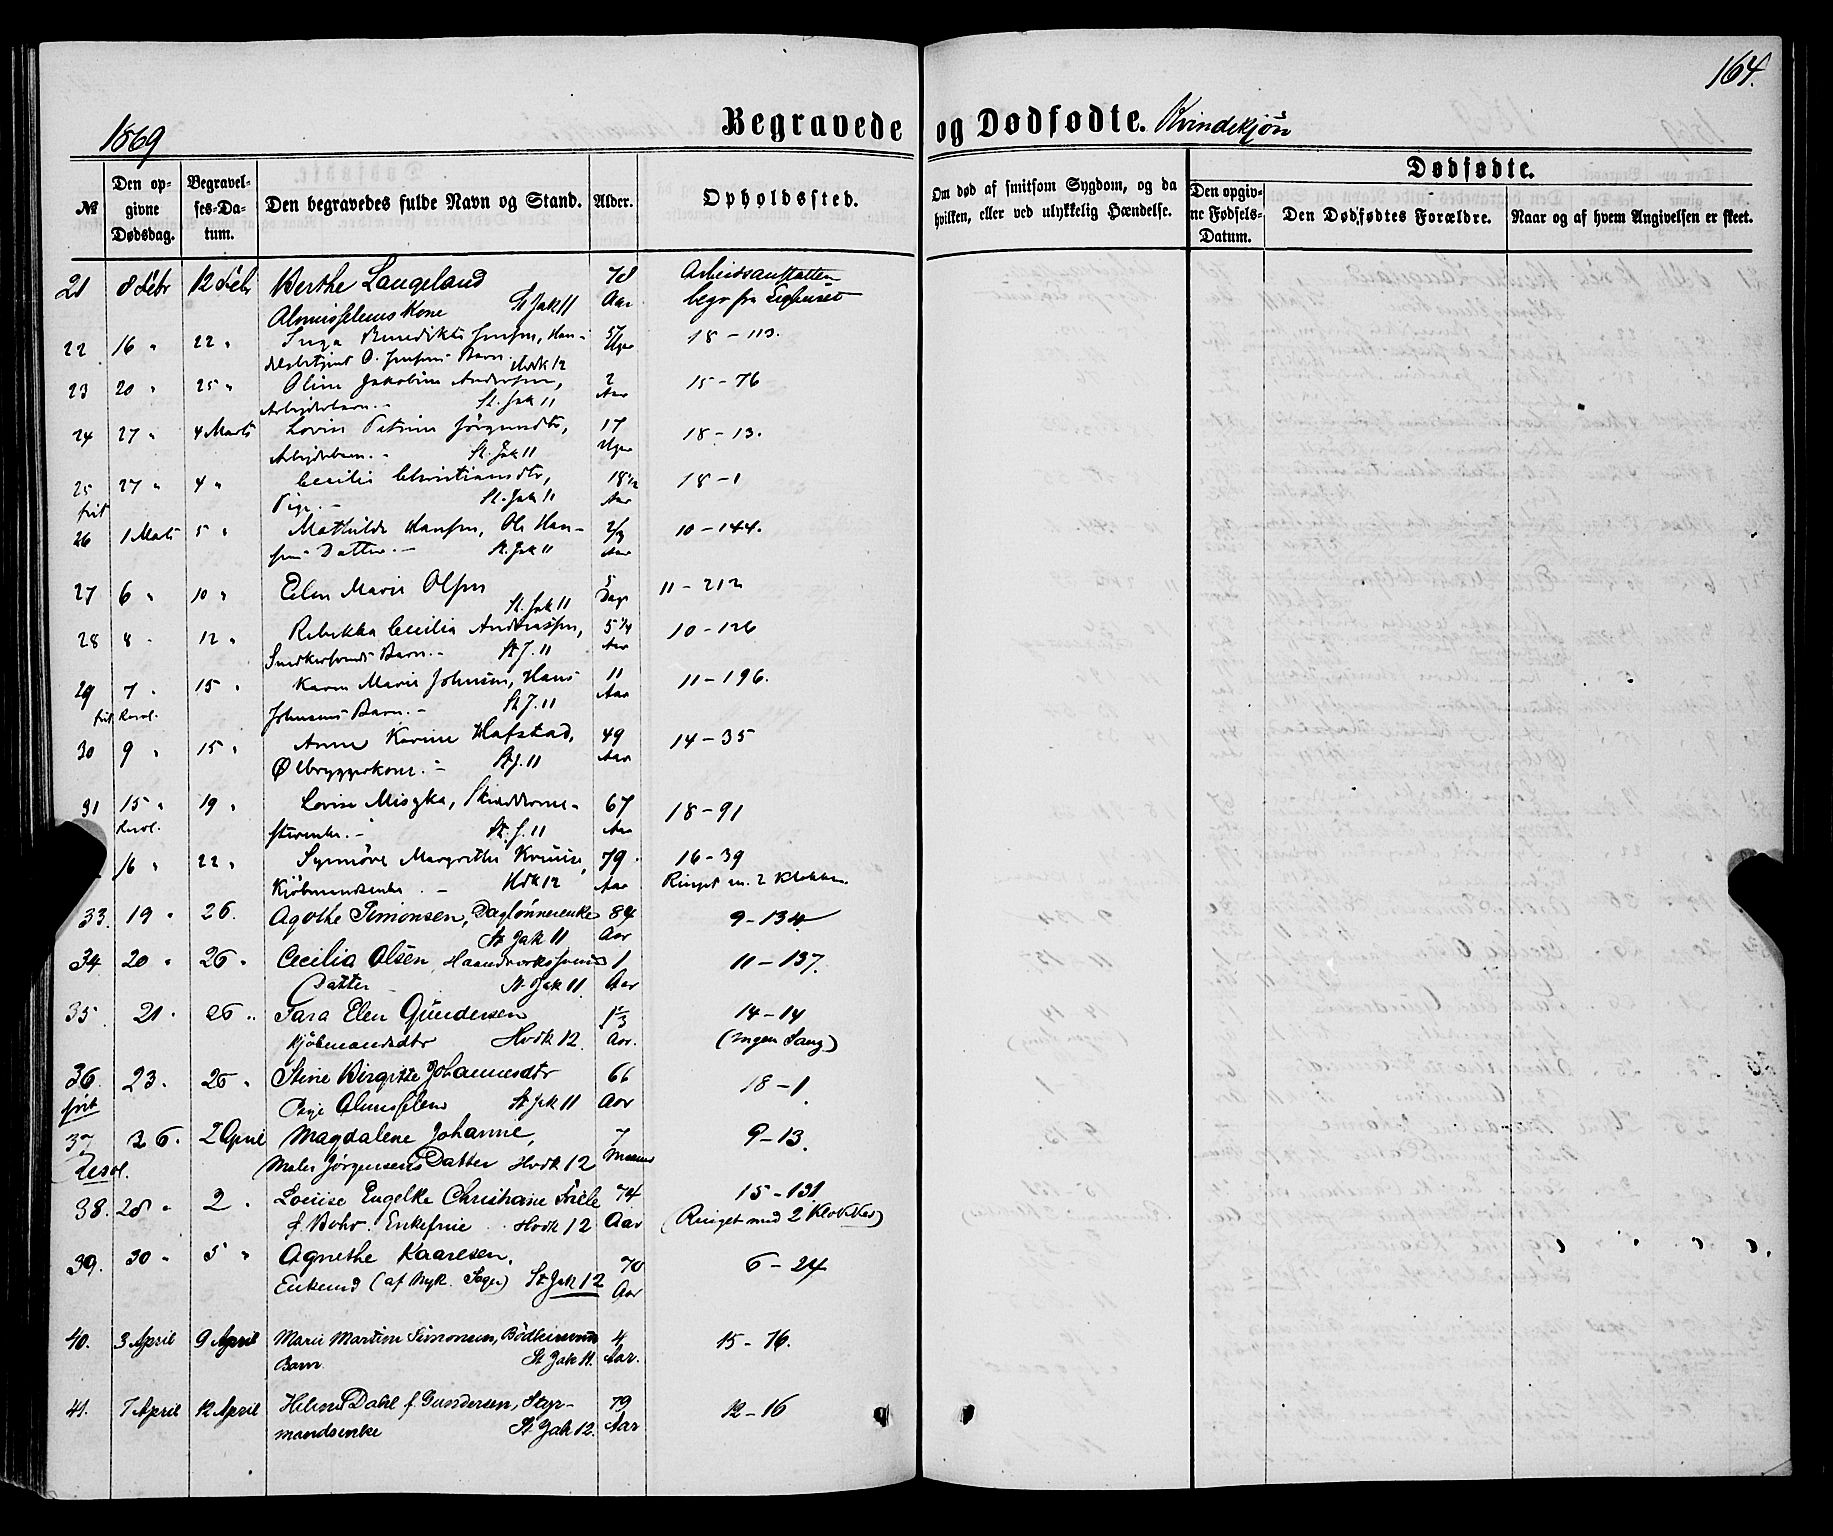 164.
1869
Begravede og Dødfødte. Kvindekjøn
№
Den opgivne Dødsdag.
Begravelses-Datum.
Den begravedes fulde Navn og Stand.
Alder.
Opholdssted.
Om død af smitsom Sygdom, og da hvilken, eller ved ulykkelig Hændelse.
Dødfødte.
Den opgivne Fødsels-Datum.
Den Dødfødtes Forældre.
Naar og af hvem Angivelsen er skeet.
21 8 Febr 12 Febr Berthe Langeland 78 Arbeidsanstalten
Almisselems Kone St Jak 11 Aar begr fra Lighuset
22 16 " 22 " Inga Benedikte Jensen, Han- 18 - 113.
O. Jensens Barn. Hvdk 12 Uger
23 20 " 25 " Oline Jakobine Andersen, 2 15 - 76
Arbejderbarn. - St. Jak 11 Aar
24 27 " 4 Marts Lovise Petrine Jørgensdtr, 17 18 - 13.
Arbejderbarn. - St. Jak 11 Uger
25 27 " 4 " Cecilie Christiansdtr, 18 1/2 18 - 1
frit Pige. - St. Jak 11 Aar
26 1 Marts 5 " Mathilde Hansen, Ole Han- 2/3 10 - 144.
sens Datter. - St. Jak 11 Aar
27 6 " 10 " Elen Marie Olsen 5 11 - 212
St. Jak 11 Dage
28 8 " 12 " Rebekka Cecilia Andreassen, 5 1/4 10 - 126
Snedkersvends Barn. - St J. 11 Aar
29 7 " 15 " Karen Marie Johnsen, Hans 11 11 - 196.
frit Resol. Johnsens Barn. - St J. 11 Aar
30 9 " 15 " Anne Karine Hafstad, 49 14 - 35
Ølbryggerkone. - St J. 11 Aar
31 15 " 19 " Lovise Miszka, Skrædderme- 67 18 - 91
Resol. sterenke. - St. J. 11 Aar
16 " 22 " Synnøve Margrethe 79 16 - 39
Kjøbmandsenke. - Hvdk 12 Aar Ringet m. 2 Klokker.
33. 19 " 26. Agathe Simonsen, Daglønnerenke 84 9 - 134
St Jak 11 Aar
34 20 " 26 " Cecilia Olsen, Haandværkssvends 1 11 - 137.
Datter St. Jak 11. Aar
35 21 " 26 " Sara Elen Gundersen 14 - 14
Kjøbmandsdtr Hvdk 12. Aar. (Ingen Sang)
36. 23. 26 " Stine Birgitte Johannesdtr 66 18 - 1.
frit Pige Almisselem St Jak 11 Aar
37 26. 2 April Magdalene Johanne, 7 9 - 13.
Resol. Maler Jørgensens Datter Hvdk 12
38. 28 " 2 " Louise Engelke Christiane Friele 74 15 - 131
f Bohr. Enkefrue Hvdk 12 Aar (Ringet med 2 Klokker)
39. 30 " 5 " Agnethe Kaaresen, 78 6 - 24
Enkemd (af Nyk. Sogn) St Jak 12 Aar
40. 3 April 9 April Marie Martine Simonsen, 4 15 - 76.
Barn. St Jak 11. Aar.
41. 7 April 12 April Helene Dahl f. Gundersen, Styr- 79 12 - 16
mandsenke St. Jak 12. Aar